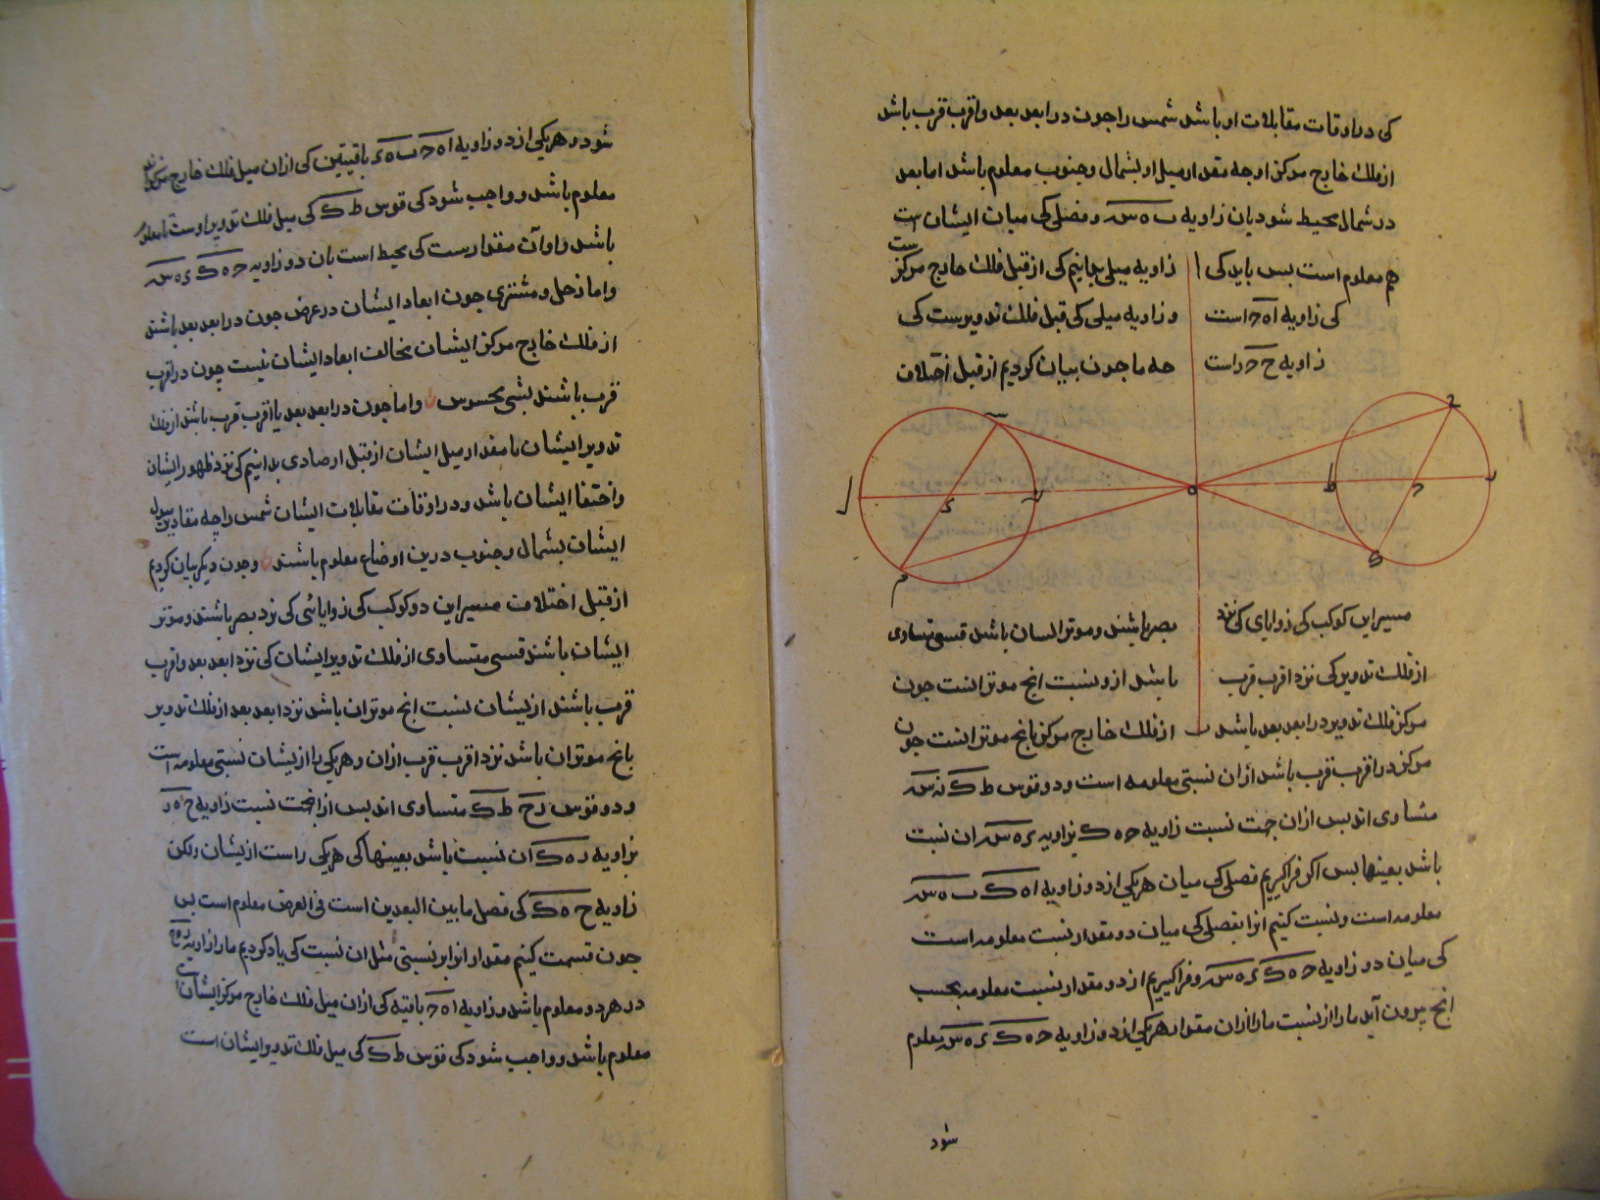 کی در اوقات مقابلات او باشد شمس را جون در ابعد بعد و اقرب قرب باشد
از فلک خارج مرکز او جه مقدار میل او بشمال و جنوب معلوم باشد اما بعد
در شمال محیط شود بان زاویه ب ه س و فصلی کی میان ایشان است
هم معلوم است بس باید کی ا زاویه میلی بدانیم کی از قبل فلک خارج مرکز است
کی زاویه ا ه ح است و زاویه میلی کی قبل فلک تدویرست کی
زاویه ح ح ر است جه ما جون بیان کردیم از قبل اختلاف
مسیر این کوکب کی زوایای کی نزد بصر باشند و موتر ایشان باشد قسی متساوی
از فلک تدویر کی نزد اقرب قرب باشد از و نسبت انج موتر انست جون
مرکز فلک تدویر در ابعد بعد باشد ب از فلک خارج مرکز بانج موتر انست جون
مرکز در اقرب قرب باشد ازان نسبتی معلومه است و دو قوس ط ک ن س
متساوی اند بس ازان جهت نسبت زاویه ح ه ک بزاویه ی ه س ان نسبت
باشد بعینها بس اکر فراکیریم فصلی کی میان هریکی از دو زاویه ا ه ک ب ه س
معلومه است و نسبت کنیم انرا بفصلی کی میان دو مقدار نسبت معلومه است
کی میان دو زاویه ح ه ک ی ه س و فراکیریم از دو مقدار نسبت معلومه بحسب
انج بیرون آید ما را از نسبت ما را ازان مقدار هریکی از دو زاویه ح ه ک ی ه س معلوم
شود
شود و هریکی از دو زاویه ا ه ح ب ه ی باقیتین کی ازان میل فلک خارج مرکز
معلوم باشد و واجب شود کی قوس ط ک کی میل فلک تدویر اوست معلوم
باشد و او آن مقدارست کی محیط است بان دو زاویه ح ه ک ی ه س
و اما زحل و مشتری جون ابعاد ایشان در عرض جون در ابعد بعد باشند
از فلک خارج مرکز ایشان مخالف ابعاد ایشان نیست چون در اقرب
قرب باشند بشی محسوس و اما جون در ابعد بعد یا اقرب قرب باشند از فلک
تدویر ایشان ما مقدار میل ایشان از قبل ارصادی بدانیم کی نزد ظهور ایشان
و اختفا ایشان باشد و در اوقات مقابلات ایشان شمس را جه مقادیر میول
ایشان بشمال و جنوب درین اوضاع معلوم باشند و جون دیکر بیان کردیم
از قبل اختلاف مسیر این دو کوکب کی زوایائی کی نزد بصر باشند و موتر
ایشان باشند قسی متساوی از فلک تدویر ایشان کی نزد ابعد بعد و اقرب
قرب باشند ازیشان نسبت انج موتر ان باشد نزد ابعد بعد از فلک تدویر
بانج موتر ان باشد نزد اقرب قرب ازان و هریکی را ازیشان نسبتی معلومه است
و دو قوس رح ط ک متساوی اند بس از انجهت نسبت زاویه ح ه ر
بزاویه ه ک ان نسبت باشد بعینها کی هریکی راست ازیشان ولکن
زاویه ح ه ک کی فصل ما بین البعدین است فی العرض معلوم است بس
جون قسمت کنیم مقدار انرا بر نسبتی مثل ان نسبت کی یاد کردیم ما را زاویه
در هر دو معلوم باشد و زاویه ا ه ح باقیه کی ازان میل فلک خارج مرکز ایشان است
معلوم باشد و واجب شود کی قوس ط ک کی میل فلک تدویر ایشان است